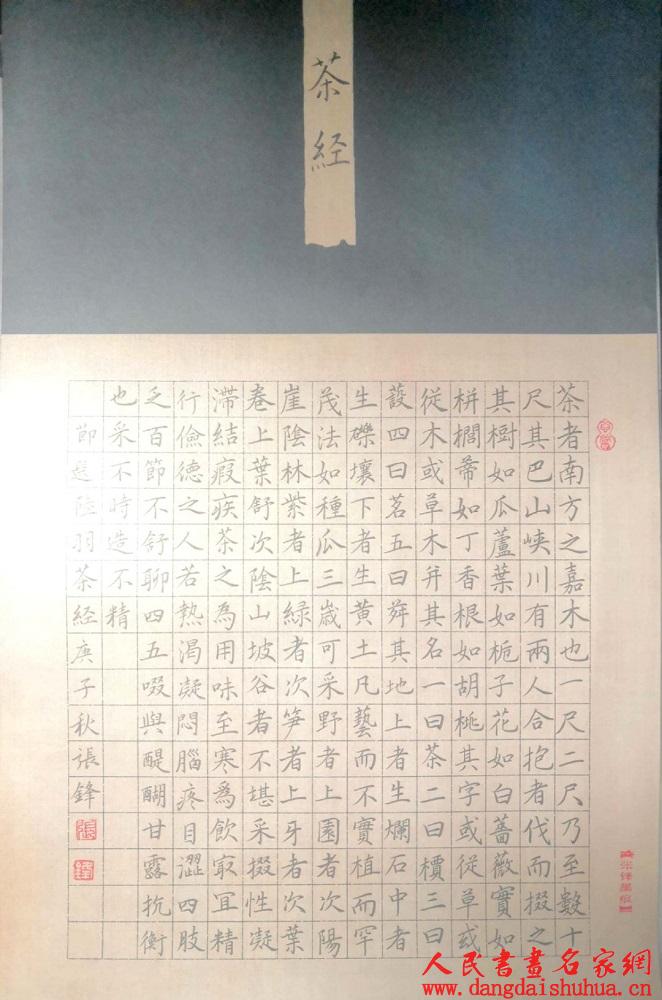 茶経
茶者南方之嘉木也一尺二尺乃至數十
尺其巴山峽川有兩人合抱者伐而掇之
其樹如瓜蘆葉如梔子花如白薔薇實如
栟櫚蒂如丁香根如胡桃其字或從草或
從木或草木并其名一曰茶二曰檟三曰
蔎四曰茗五曰荈其地上者生爛石中者
生礫壤下者生黃土凡藝而不實植而罕
茂法如種瓜三歲可采野者上園者次陽
崖陰林紫者上綠者次笋者上牙者次葉
卷上葉舒次陰山坡谷者不堪采掇性凝
滯結瘕疾茶之為用味至寒為飲最宜精
行儉德之人若熱渴凝悶腦疼目澀四肢
乏百節不舒聊四五啜與醍醐甘露抗衡
也采不時造不精
節選陸羽茶経庚子秋張鋒
張
鋒
【张锋墨痕】
人民書畫名家網
www.dangdaishuhua.cn